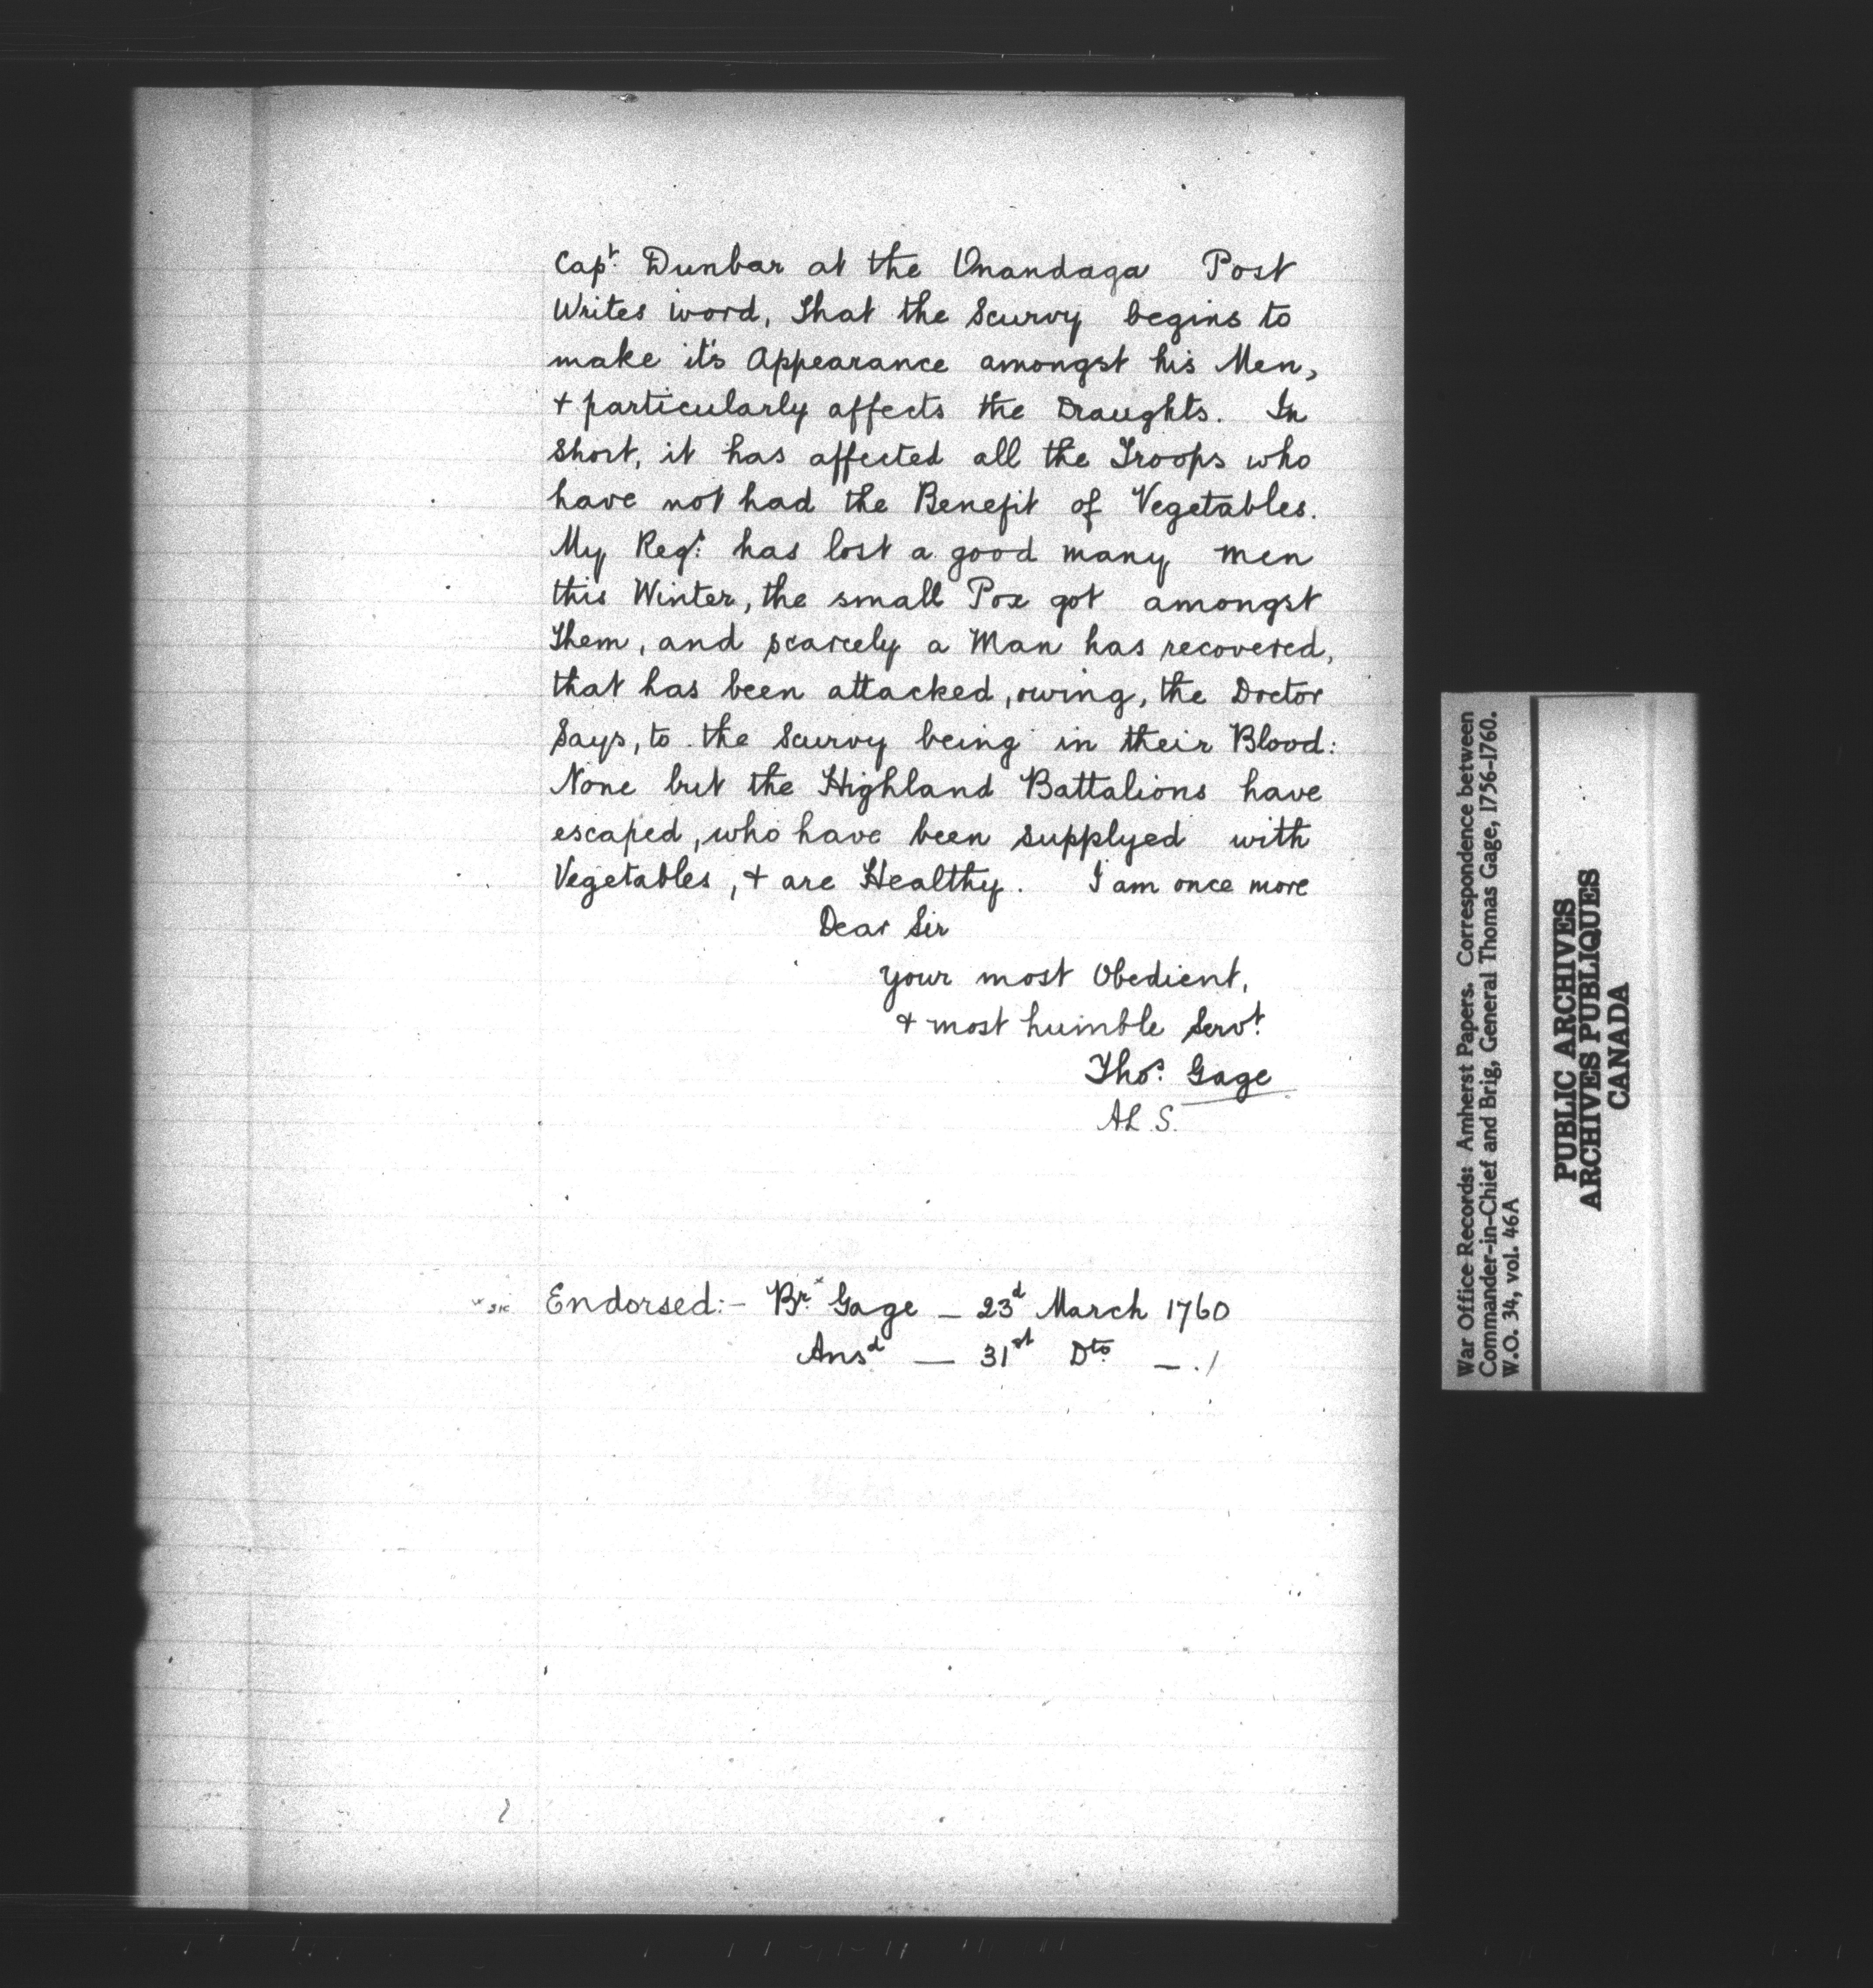 Capt. Dunbar at the Onandaga Post
Writes word, That the Scurvy begins to
make it's Appearance amongst his Men,
+ particularly affects the Draughts. In
Short, it has affected all the Troops who
have not had the Benefit of Vegetables.
My Regt. has lost a good many men
this Winter, the small Pox got amongst
Them, and scarcely a Man has recovered,
that has been attacked, owing, the Doctor
Says, to the Scurvy being in their Blood:
None but the Highland Battalions have
escaped, who have been supplyed with
Vegetables, + are Healthy. I am once more
Dear Sir
Your most Obedient,
+ most humble Servt.
Thos. Gage
A.L.S.
Endorsed:- Br. Gage — 23d March 1760
Ansd — 31st Dto. — ./
War Office Records: Amherst Papers. Correspondence between
Commander-in-Chief and Brig, General Thomas Gage, 1756-1760.
W.O. 34, vol. 46A
PUBLIC ARCHIVES
ARCHIVES PUBLIQUES
CANADA